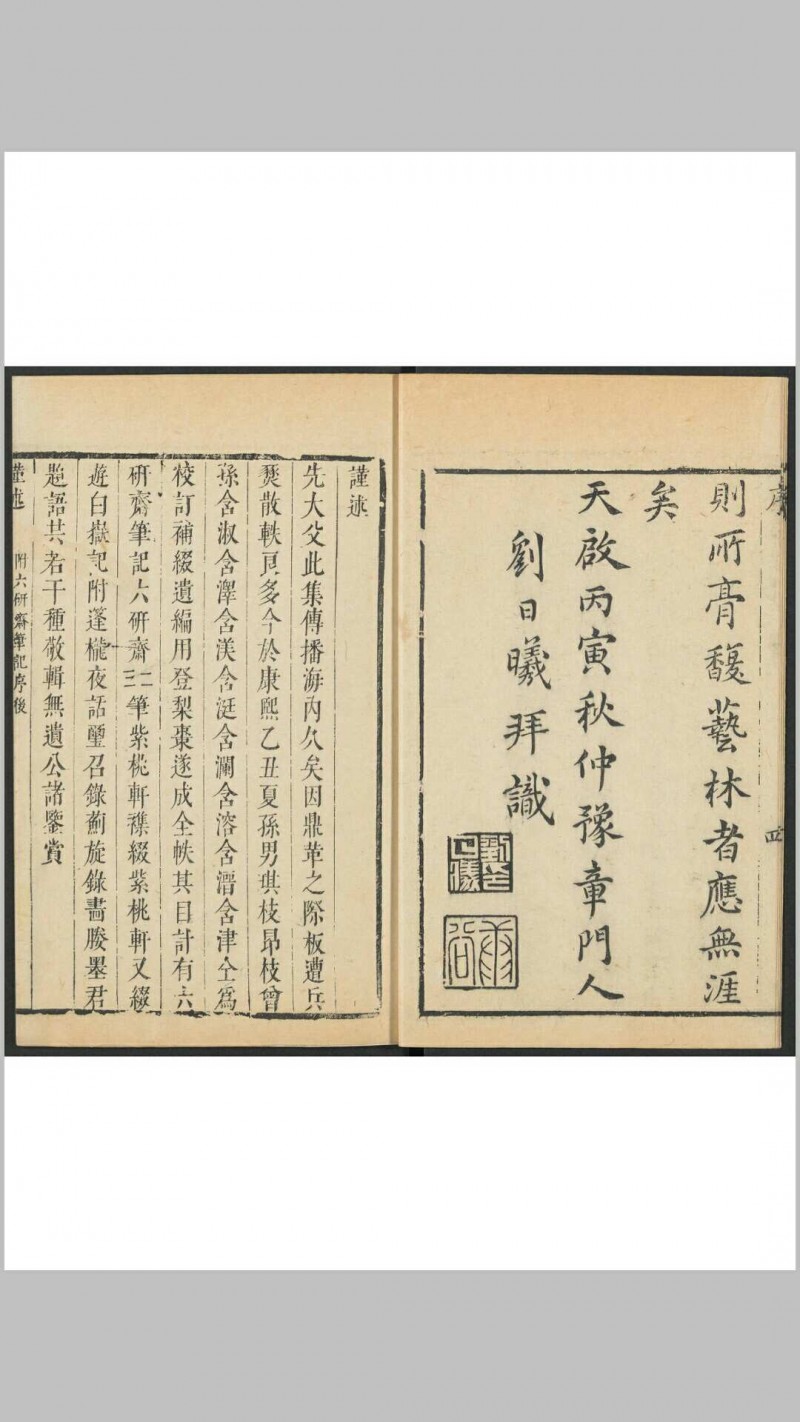 序
四
則所膏馥藝林者應無涯
矣
天啟丙寅秋仲豫章門人
劉日曦拜識
謹述
先大父此集傳播海內久矣因鼎革之際板遭兵
燹散軼頁多今於康熙乙丑夏孫男琪枝昂枝曾
孫含淑含澤含渼含涏含瀾含溶含潛含津仝爲
校訂補綴遺編用登梨棗遂成全帙其目計有六
研齋筆記六研齋二三筆紫桃軒襍綴紫桃軒又綴
遊白嶽記附蓬櫳夜話璽召錄薊旋錄畵媵墨君
題語共若干種敬輯無遺公諸鑒賞
謹述
附六研齋筆記序後